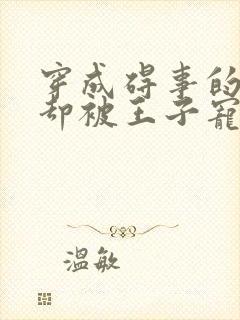 穿成碍事的
却被王子宠
温敏